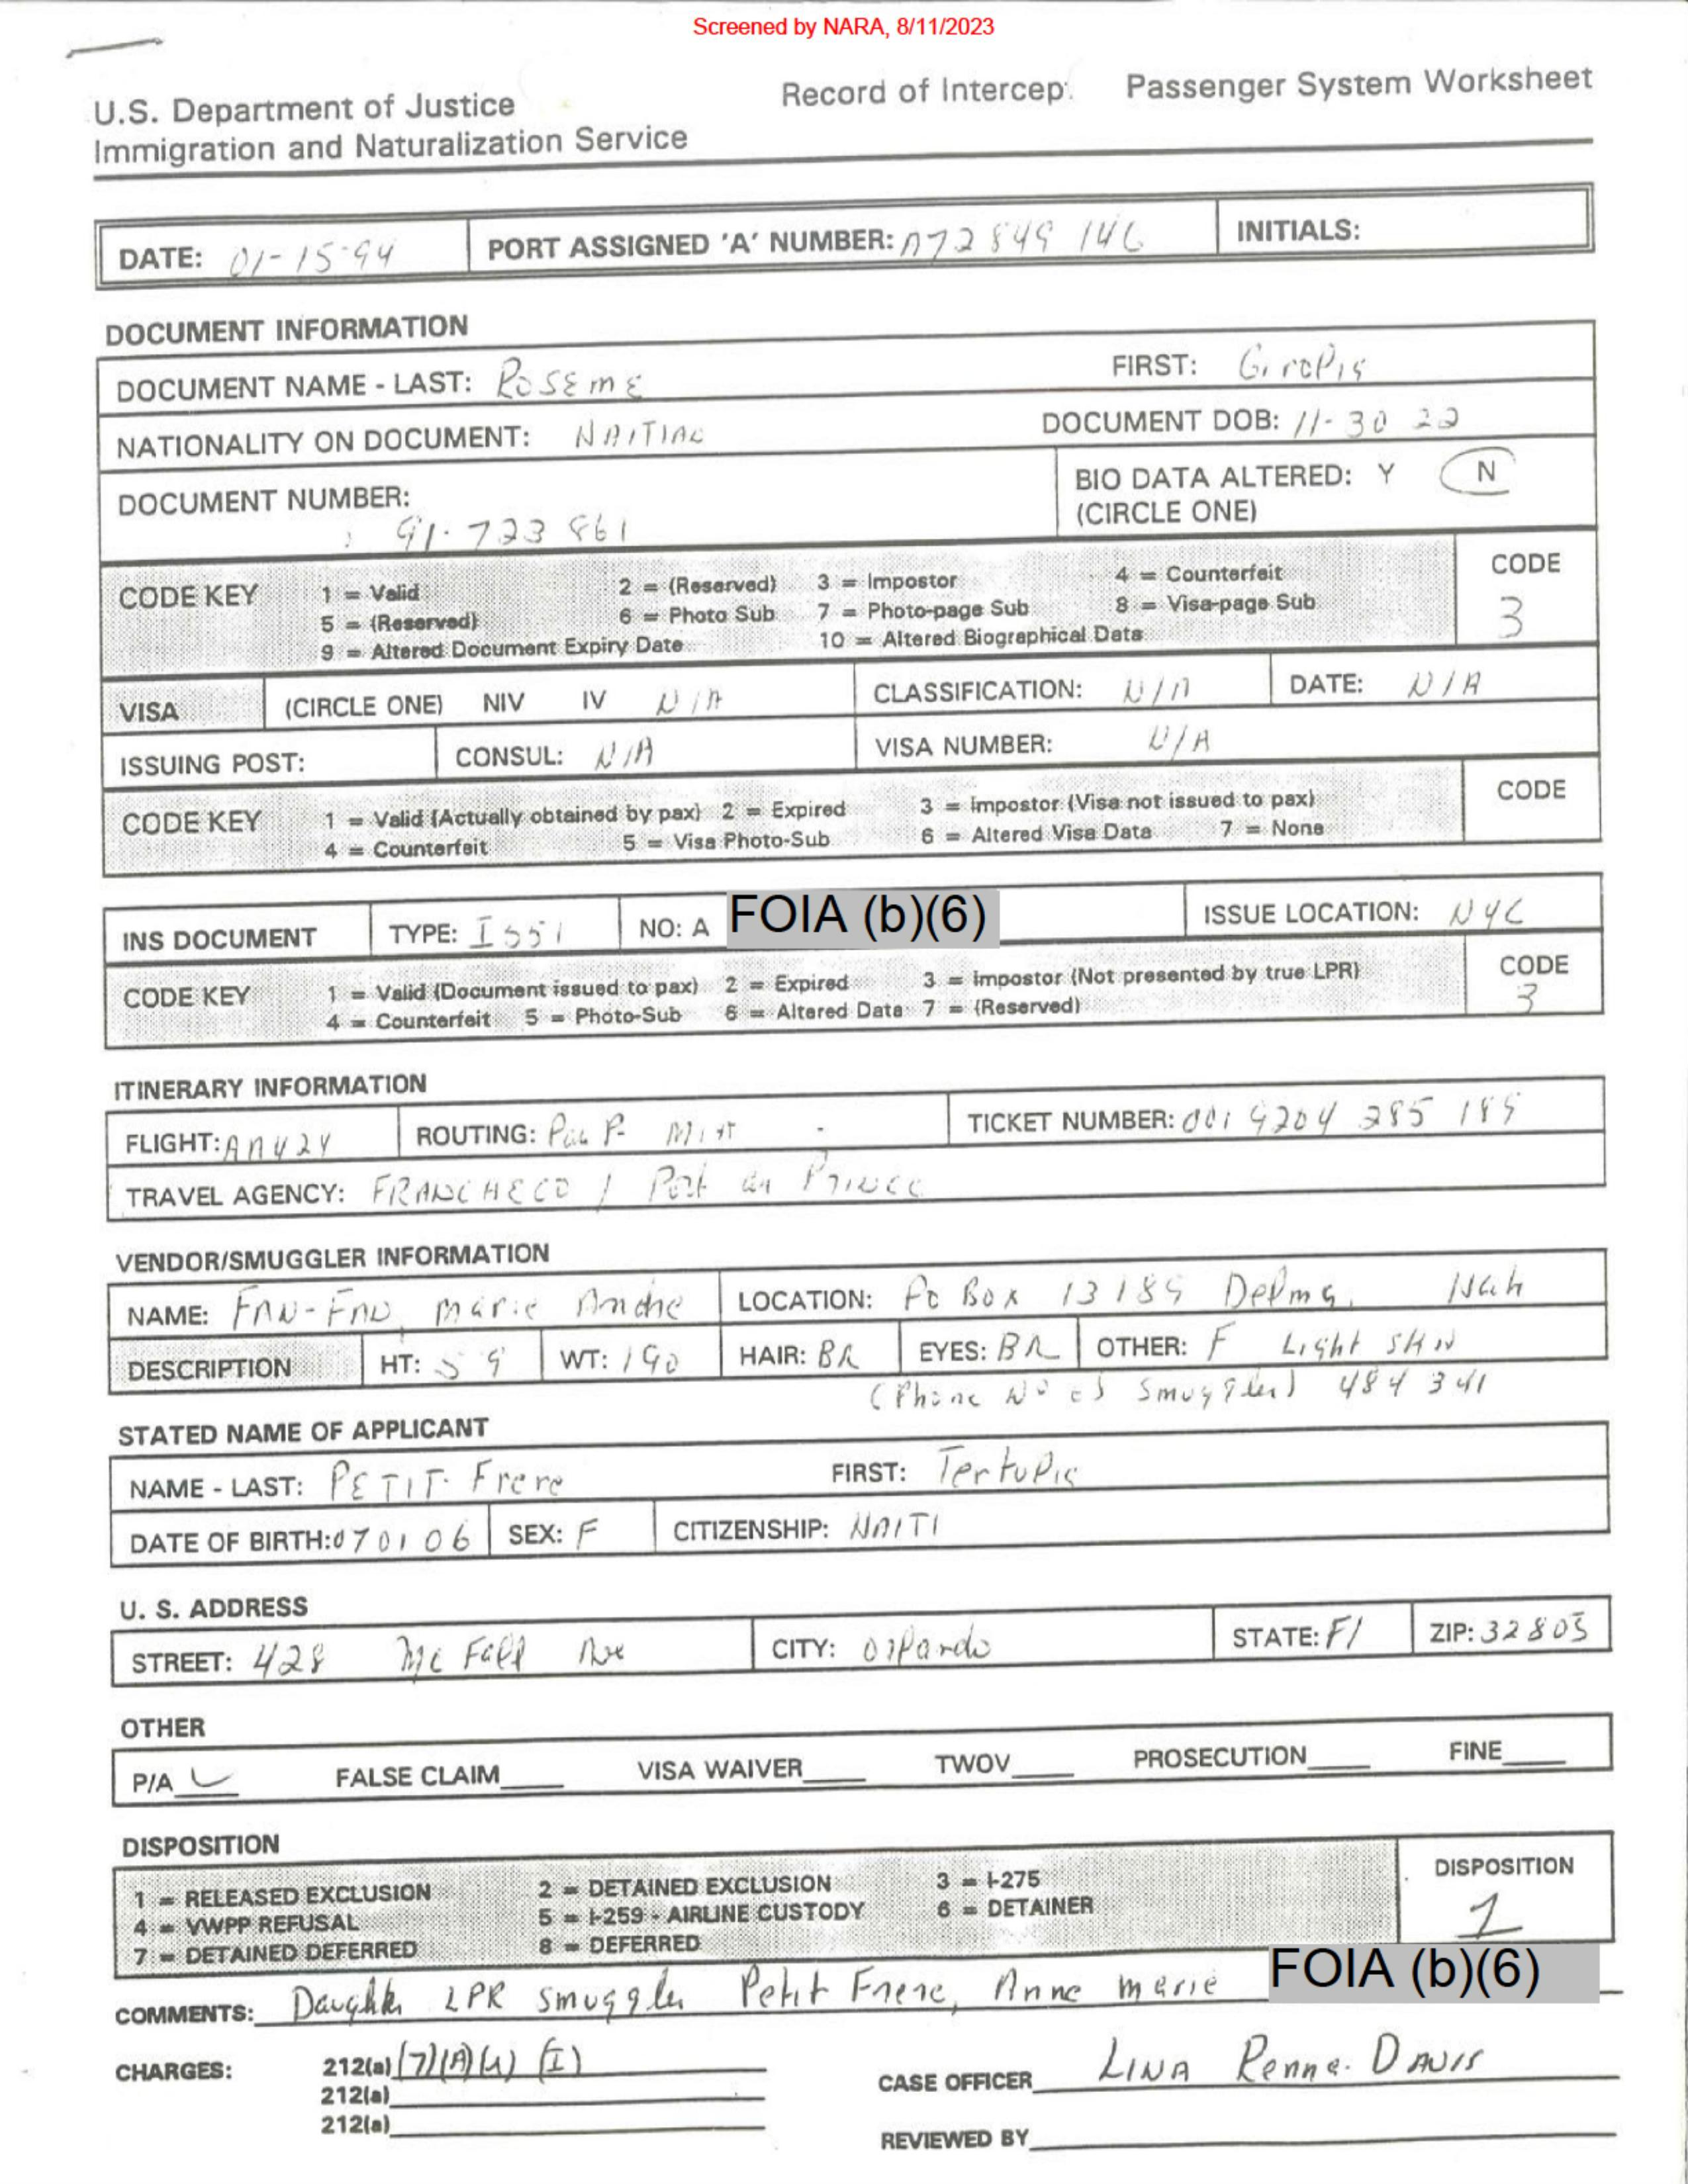 Screened by NARA, 8/11/2023
U.S. Department of Justice
Immigration and Naturalization Service
Record of Intercep. Passenger System Worksheet
DATE: 01-15-94 PORT ASSIGNED 'A' NUMBER: A72 849 146 INITIALS:
DOCUMENT INFORMATION
DOCUMENT NAME - LAST: ROSEME FIRST:
NATIONALITY ON DOCUMENT: DOCUMENT DOB: 11-30 22
DOCUMENT NUMBER: 91-723 861
BIO DATA ALTERED: Y N
(CIRCLE ONE)
CODE KEY 1 = Valid 2 = (Reserved) 3 = Impostor 4 = Counterfeit
5 = (Reserved) 6 = Photo Sub 7 = Photo-page Sub 8 = Visa-page Sub
9 = Altered Document Expiry Date 10 = Altered Biographical Data
CODE
3
VISA (CIRCLE ONE) NIV IV N/A CLASSIFICATION: N/A DATE: N/A
ISSUING POST: CONSUL: N/A VISA NUMBER: N/A
CODE KEY 1 = Valid (Actually obtained by pax) 2 = Expired 3 = Impostor (Visa not issued to pax)
4 = Counterfeit 5 = Visa Photo-Sub 6 = Altered Visa Data 7 = None
CODE
INS DOCUMENT TYPE: I 551 NO: A FOIA (b)(6) ISSUE LOCATION: NYC
CODE KEY 1 = Valid (Document issued to pax) 2 = Expired 3 = Impostor (Not presented by true LPR)
4 = Counterfeit 5 = Photo-Sub 6 = Altered Data 7 = (Reserved)
CODE
3
ITINERARY INFORMATION
FLIGHT: AA424 ROUTING: TICKET NUMBER: 001 9204 285 185
TRAVEL AGENCY: FRANCHECO / Port au Prince
VENDOR/SMUGGLER INFORMATION
NAME: FAN-FAN, Marie Andre LOCATION: Po Box 13189 Delmas,
DESCRIPTION HT: 5 9 WT: 190 HAIR: BR EYES: BR OTHER: F Light SKN
(Phone No of Smuggler) 484 341
STATED NAME OF APPLICANT
NAME - LAST: PETIT-Frere FIRST:
DATE OF BIRTH: 070106 SEX: F CITIZENSHIP: HAITI
U. S. ADDRESS
STREET: 428 Mc Fall Ave CITY: Orlando STATE: Fl ZIP: 32805
OTHER
P/A FALSE CLAIM VISA WAIVER TWOV PROSECUTION FINE
DISPOSITION
1 = RELEASED EXCLUSION 2 = DETAINED EXCLUSION 3 = I-275
4 = VWPP REFUSAL 5 = I-259 - AIRLINE CUSTODY 6 = DETAINER
7 = DETAINED DEFERRED 8 = DEFERRED
DISPOSITION
1
COMMENTS: Daughter LPR smuggler Petit Frere, Anne Marie FOIA (b)(6)
CHARGES: 212(a) (7)(A)(i)(I)
212(a)
212(a)
CASE OFFICER LINA Renna-DAVIS
REVIEWED BY